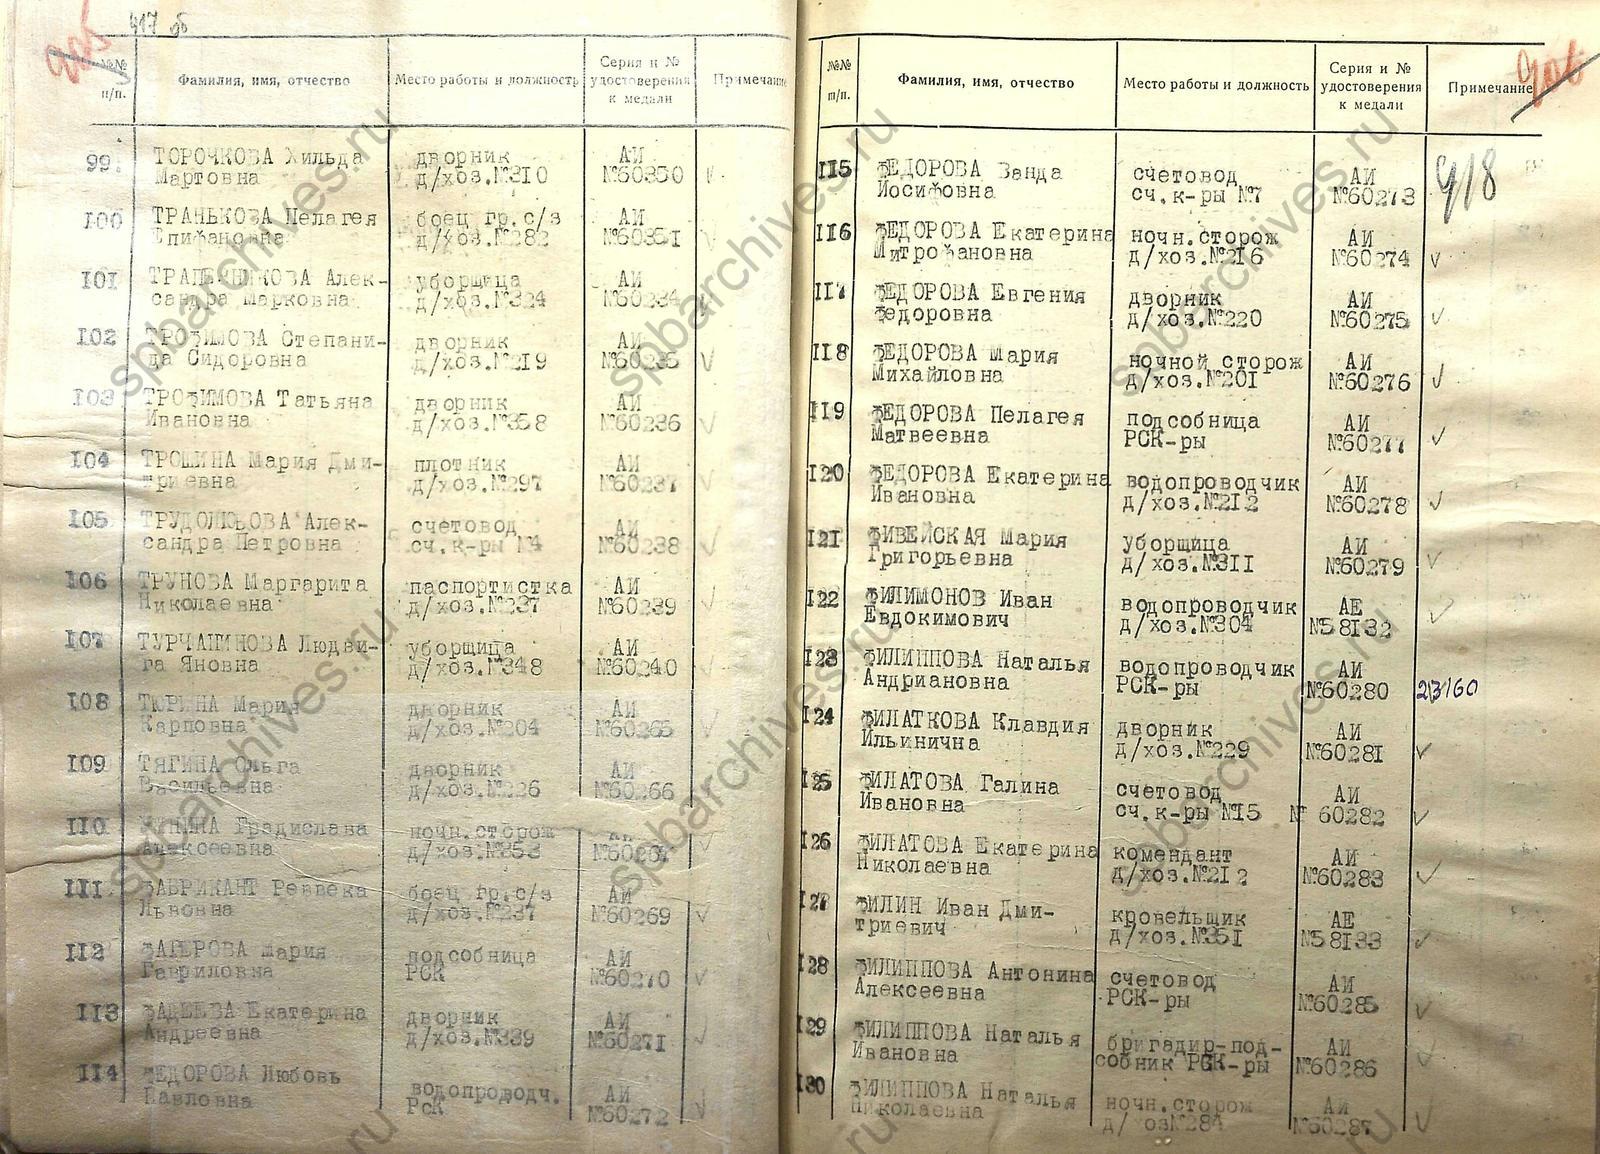 205
417 об
№№
п/п.
Фамилия, имя, отчество
Место работы и должность
Серия и №
удостоверения
к медали
Примечание
99.
ТОРОЧКОВА Хильда
Мартовна
дворник
д/хоз.№310
АИ
№60350
100
ТРАНЬКОВА Пелагея
Епифановна
боец гр.с/з
д/хоз.№282
АИ
№60351
101
Алек-
сандра Марковна
уборщица
д/хоз.№324
АИ
№60234
102
ТРОФИМОВА Степани-
да Сидоровна
дворник
д/хоз.№219
АИ
№60235
103
ТРОФИМОВА Татьяна
Ивановна
дворник
д/хоз.№358
АИ
№60236
104
ТРОШИНА Мария Дми-
триевна
плотник
д/хоз.№297
АИ
№60237
105
ТРУДОЛЮБОВА Алек-
сандра Петровна
счетовод
сч.к-ры №4
АИ
№60238
106
ТРУНОВА Маргарита
Николаевна
паспортистка
д/хоз.№237
АИ
№60239
107
ТУРЧАНИНОВА Людви-
га Яновна
уборщица
д/хоз.№348
АИ
№60240
108
ТЮРИНА Мария
Карповна
дворник
д/хоз.№204
АИ
№60265
109
ТЯГИНА Ольга
Васильевна
дворник
д/хоз.№226
АИ
№60266
110
Градислава
Алексеевна
ночн.сторож
д/хоз.№353
АИ
№60267
111
ФАБРИКАНТ Ревека
Львовна
боец гр.с/з
д/хоз.№237
АИ
№60269
112
Мария
Гавриловна
подсобница
РСК
АИ
№60270
113
ФАДЕЕВА Екатерина
Андреевна
дворник
д/хоз.№339
АИ
№60271
114
ФЕДОРОВА Любовь
Павловна
водопроводч.
РСК
АИ
№60272
206
№№
п/п.
Фамилия, имя, отчество
Место работы и должность
Серия и №
удостоверения
к медали
Примечание
418
115
ФЕДОРОВА Ванда
Иосифовна
счетовод
сч.к-ры №7
АИ
№60273
116
ФЕДОРОВА Екатерина
Митрофановна
ночн.сторож
д/хоз.№216
АИ
№60274
117
ФЕДОРОВА Евгения
Федоровна
дворник
д/хоз.№220
АИ
№60275
118
ФЕДОРОВА Мария
Михайловна
ночной сторож
д/хоз.№201
АИ
№60276
119
ФЕДОРОВА Пелагея
Матвеевна
подсобница
РСК-ры
АИ
№60277
120
ФЕДОРОВА Екатерина
Ивановна
водопроводчик
д/хоз.№212
АИ
№60278
121
ФИВЕЙСКАЯ Мария
Григорьевна
уборщица
д/хоз.№311
АИ
№60279
122
ФИЛИМОНОВ Иван
Евдокимович
водопроводчик
д/хоз.№304
АЕ
№58132
123
ФИЛИППОВА Наталья
Андриановна
водопроводчик
РСК-ры
АИ
№60280
213160
124
ФИЛАТКОВА Клавдия
Ильинична
дворник
д/хоз.№229
АИ
№60281
125
ФИЛАТОВА Галина
Ивановна
счетовод
сч.к-ры №15
АИ
№ 60282
126
ФИЛАТОВА Екатерина
Николаевна
комендант
д/хоз.№212
АИ
№60283
127
ФИЛИН Иван Дми-
триевич
кровельщик
д/хоз.№351
АЕ
№58133
128
ФИЛИППОВА Антонина
Алексеевна
счетовод
РСК-ры
АИ
№60285
129
ФИЛИППОВА Наталья
Ивановна
бригадир-под-
собник РСК-ры
АИ
№60286
130
ФИЛИППОВА Наталья
Николаевна
ночн.сторож
д/хоз№284
АИ
№60287
spbarchives.ru